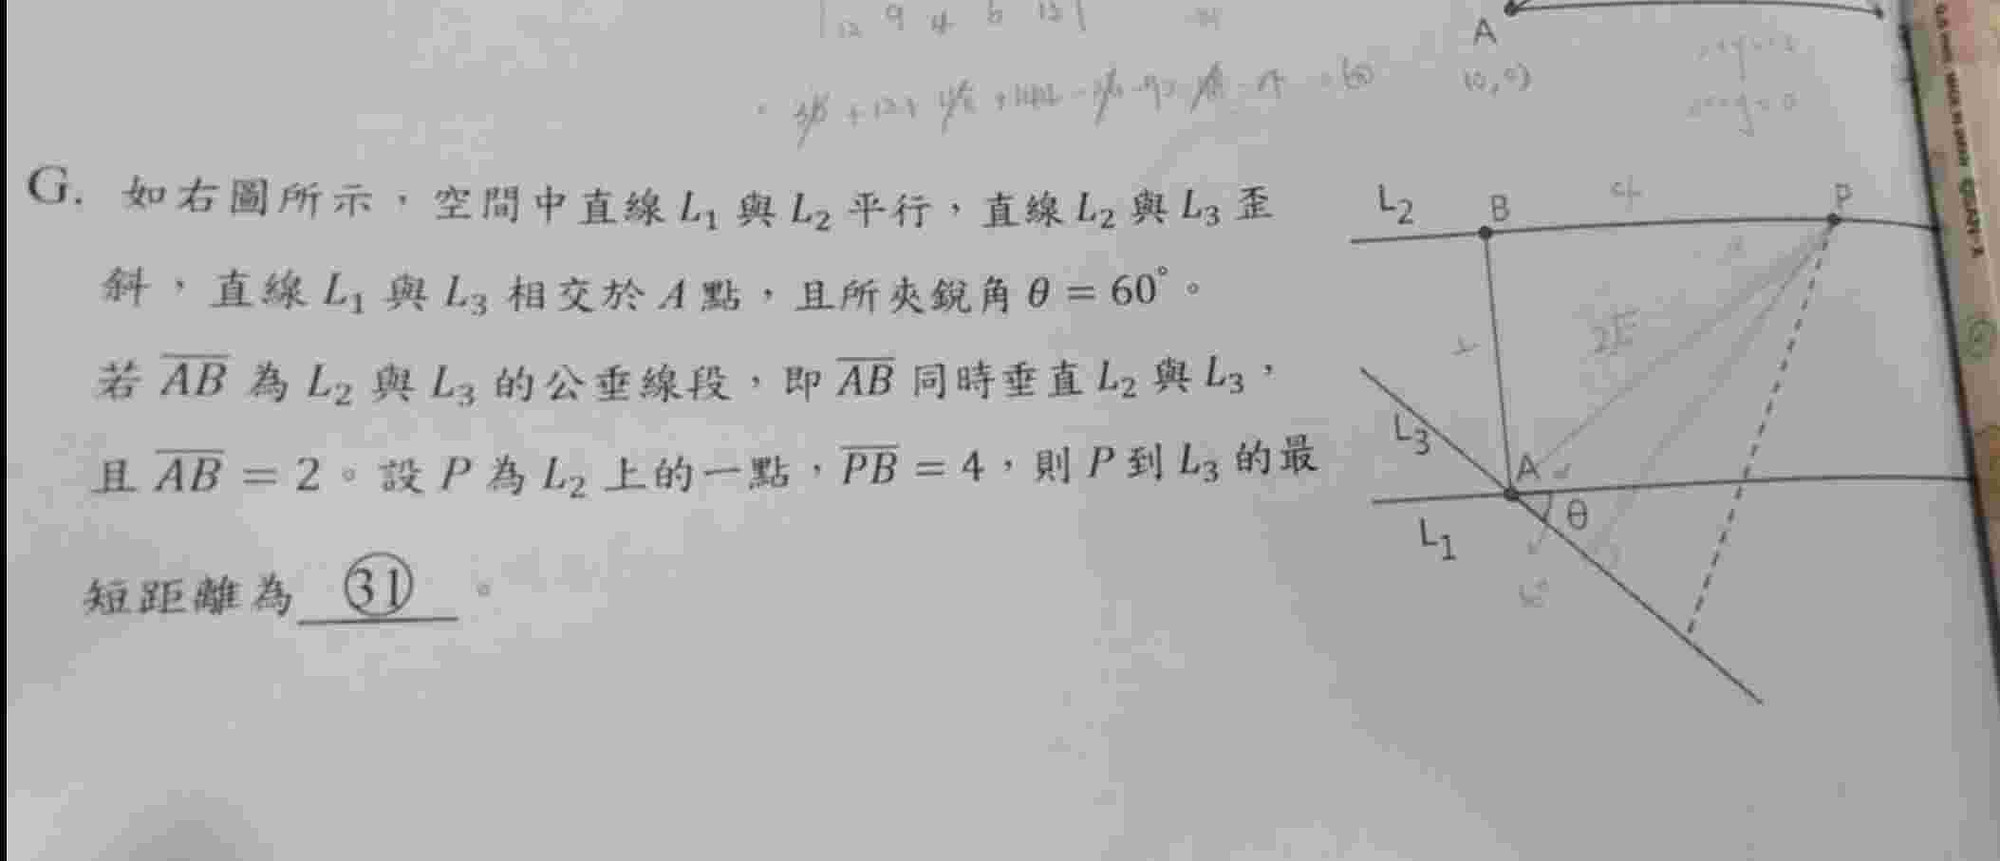 12 9 4 6 12
A
(0,0)
G. 如右圖所示，空間中直線 L₁ 與 L₂ 平行，直線 L₂ 與 L₃ 歪
斜，直線 L₁ 與 L₃ 相交於 A 點，且所夾銳角 θ = 60°。
若 AB 為 L₂ 與 L₃ 的公垂線段，即 AB 同時垂直 L₂ 與 L₃，
且 AB = 2。設 P 為 L₂ 上的一點，PB = 4，則 P 到 L₃ 的最
短距離為 ㉛ 。
L₂ B 4 P
L₃
A
θ
L₁